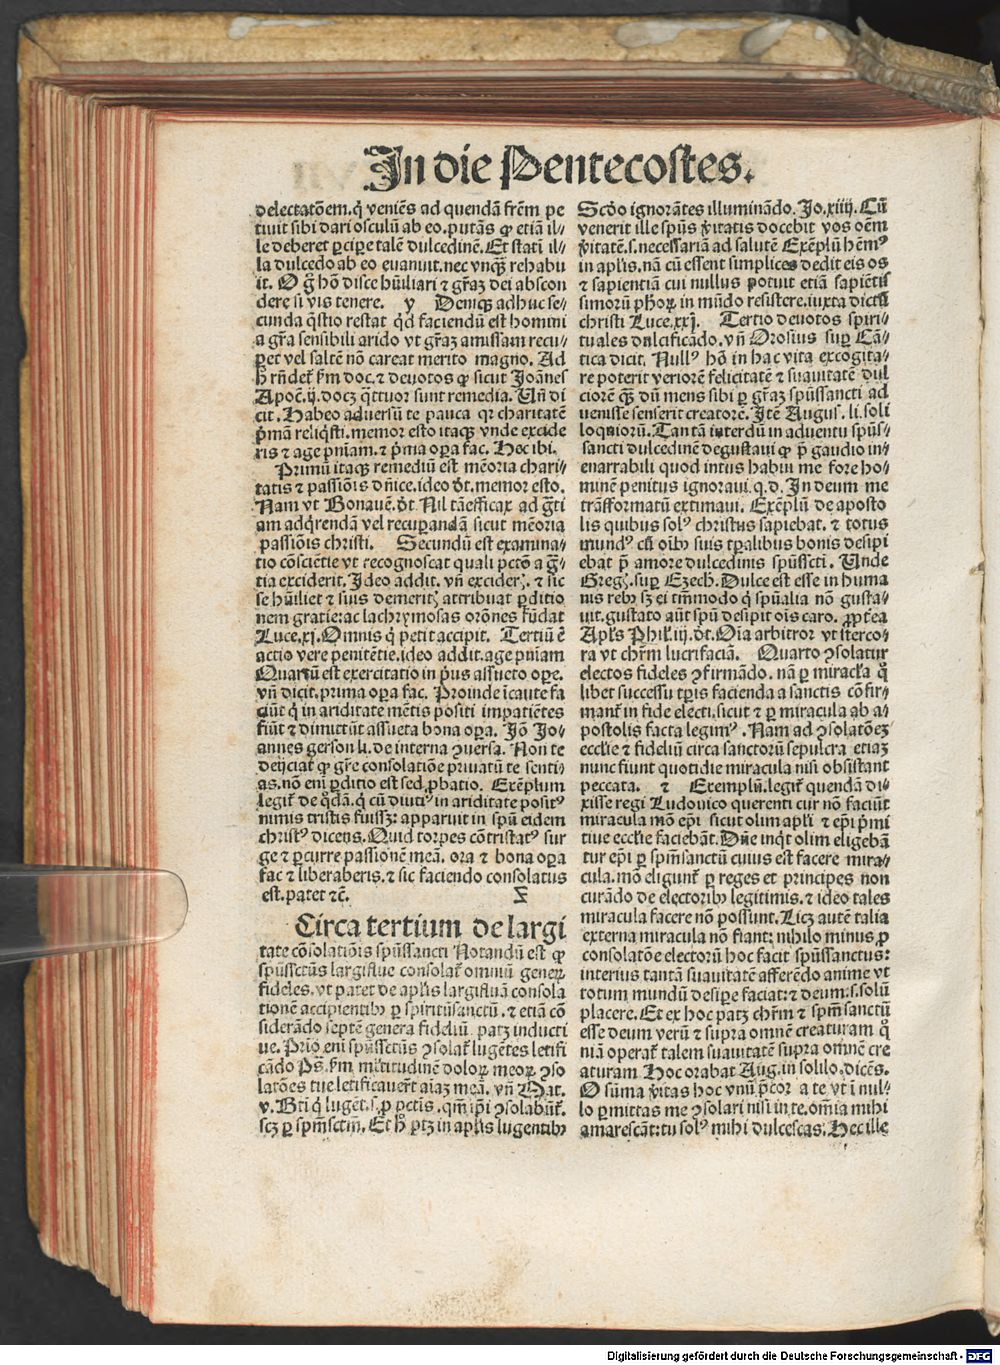 In die Pentecostes.
delectatōem. q̇ veniēs ad quendā frēm pe
tiuit sibi dari osculū ab eo. putās ꝙ etiā il⸗
le deberet ꝑcipe talē dulcedinē. Et statī il⸗
la dulcedo ab eo euanuit. nec vnqꝫ rehabu
it. O g̊ hō disce hūiliari ⁊ gr̄aꝫ dei abscon
dere si vis tenere. y Deniqꝫ adhuc se⸗
cunda q̄stio restat q̇d faciendū est homini
a gr̄a sensibili arido vt gr̄aꝫ amissam recu⸗
ꝑet vel saltē nō careat merito magno. Ad
h̊ rn̄det᷑ ẜm doc. ⁊ deuotos ꝙ sicut Joānes
Apoc̄. ij. docꝫ q̄ttuor sunt remedia. Un̄ di
cit. Habeo aduersū te pauca qꝛ charitatē
p̄mā reliq̇sti. memor esto itaqꝫ vnde excide
ris ⁊ age pn̄iam. ⁊ p̄ma oꝑa fac. Hec ibi.
Primū itaqꝫ remediū est mēoria chari⸗
tatis ⁊ passiōis dn̄ice. ideo d̄t. memor esto.
Nam vt Bonauē. d̄t. Nil tā efficax ad ḡti
am adq̇rendā vel recuꝑandā sicut mēoria
passiōis christi. Secundū est examina⸗
tio cōscientie vt recognoscat quali pctō a ḡ⸗
tia exciderit. Ideo addit. vn̄ exciderꝭ. ⁊ sic
se hūiliet ⁊ suis demeritꝭ attribuat ꝑditio
nem gratie: ac lachrymosas orōnes fūdat
Luce. xj. Omnis q̇ petit accipit. Tertiū ē
actio vere penitētie. ideo addit. age pn̄iam
Quartū est exercitatio in ṗus assueto oꝑe.
vn̄ dicit. prima oꝑa fac. Proinde īcaute fa
ciūt q̇ in ariditate mētis positi impatiētes
fiūt ⁊ dimittūt assueta bona oꝑa. Jō Jo⸗
annes gerson li. de interna ꝯuersa. Non te
deijciat ꝙ gr̄e consolatiōe priuatū te senti⸗
as. nō eni ꝑditio est sed ꝓbatio. Exēplum
legit᷑ de q̊dā. q̇ cū diutiꝰ in ariditate positꝰ
nimis tristis fuissꝫ: apparuit in spū eidem
christꝰ dicens. Quid torpes cōtristatꝰ sur
ge ⁊ ꝑcurre passionē meā. ora ⁊ bona oꝑa
fac ⁊ liberaberis. ⁊ sic faciendo consolatus
est. patet ⁊c̄. Z
Circa tertium de largi
tate cōsolatiōis spūssancti Notandū est ꝙ
spūssctūs largiflue consolat᷑ omniū generꝫ
fideles. vt patet de apl̄is largifluā consola
tionē accipientibꝫ ꝑ spiritūsanctū. ⁊ etiā cō
siderādo septē genera fideliū patꝫ inducti
ue. Prio eni spūssctūs ꝯsolat᷑ lugētes letifi
cādo Ps̄. ẜm m̄ltitudinē dolorꝫ meorꝫ ꝯso
latōes tue letificauer̄t aīaꝫ meā. vn̄ Mat.
v. Bt̄i q̇ lugēt. s. ꝓ pctīs. qm̄ ip̄i ꝯsolabūt᷑.
scꝫ ꝑ spm̄sctm̄. Et h̊ ptꝫ in apl̄is lugentibꝫ
Scd̄o ignorātes illuminādo. Jo. xiiij. Cū
venerit ille spūs v̄itatis docebit vos oēm
v̄itatē. s. necessariā ad salutē Exēplū hēmꝰ
in apl̄is. nā cū essent simplices dedit eis os
⁊ sapientiā cui nullus potuit etiā sapiētis
simorū ph̄orꝫ in mūdo resistere. iuxta dictū
christi Luce. xxj. Tertio deuotos spiri⸗
tuales dulcificādo. vn̄ Orosius suꝑ Cā⸗
tica dicit. Nullꝰ hō in hac vita excogita⸗
re poterit veriorē felicitatē ⁊ suauitatē dul
ciorē qꝫ̄ dū mens sibi ꝑ gr̄aꝫ spūssancti ad
uenisse senserit creatorē. Itē Augus. li. soli
loquiorū. Tantā interdū in aduentu spūs⸗
sancti dulcedinē degustaui ꝙ p̄ gaudio in⸗
enarrabili quod intus habui me fore ho⸗
minē penitus ignoraui. q. d. In deum me
trāsformatū extimaui. Exēplū de aposto
lis quibus solꝰ christus sapiebat. ⁊ totus
mundꝰ cū oībꝫ suis tꝑalibus bonis desipi
ebat p̄ amore dulcedinis spūsscti. Unde
Gregꝭ. suꝑ Ezech̄. Dulce est esse in huma
nis rebꝫ sꝫ ei tm̄modo q̇ spūalia nō gusta⸗
uit. gustato aūt spū desipit oīs caro. ꝓpt̄ea
Apl̄s Phil̄. iij. d̄t. Oīa arbitror vt sterco⸗
ra vt chr̄m lucrifaciā. Quarto ꝯsolatur
electos fideles ꝯfirmādo. nā ꝑ miracl̄a q̊
libet successu tꝑis facienda a sanctis cōfir⸗
mant᷑ in fide electi. sicut ⁊ ꝑ miracula ab a⸗
postolis facta legimꝰ. Nam ad ꝯsolatōeꝫ
eccl̄ie ⁊ fideliū circa sanctorū sepulcra etiaꝫ
nunc fiunt quotidie miracula nisi obsistant
peccata. z Exemplū. legit᷑ quendā di⸗
xisse regi Ludouico querenti cur nō faciūt
miracula mō ep̄i sicut olim apl̄i ⁊ ep̄i p̄mi
tiue eccl̄ie faciebāt. Dn̄e inq̇t olim eligebā
tur ep̄i ꝑ spm̄sanctū cuius est facere mira⸗
cula. mō eligunt᷑ ꝑ reges et principes non
curādo de electoribꝫ legitimis. ⁊ ideo tales
miracula facere nō possunt. Licꝫ autē talia
externa miracula nō fiant: nihilo minus ꝓ
consolatōe electorū hoc facit spūssanctus:
interius tantā suauitatē afferēdo anime vt
totum mundū desipe faciat: ⁊ deum. s. solū
placere. Et ex hoc patꝫ chr̄m ⁊ spm̄sanctū
esse deum verū ⁊ supra omnē creaturam q̊
niā operat᷑ talem suauitatē supra omnē cre
aturam. Hoc orabat Aug. in solilo. dicēs.
O sūma v̄itas hoc vnū p̄cor a te vt ī nul⸗
lo ꝑmittas me ꝯsolari nisi in te. om̄ia mihi
amarescāt: tu solꝰ mihi dulcescas. Hec ille
Digitalisierung gefördert durch die Deutsche Forschungsgemeinschaft - DFG